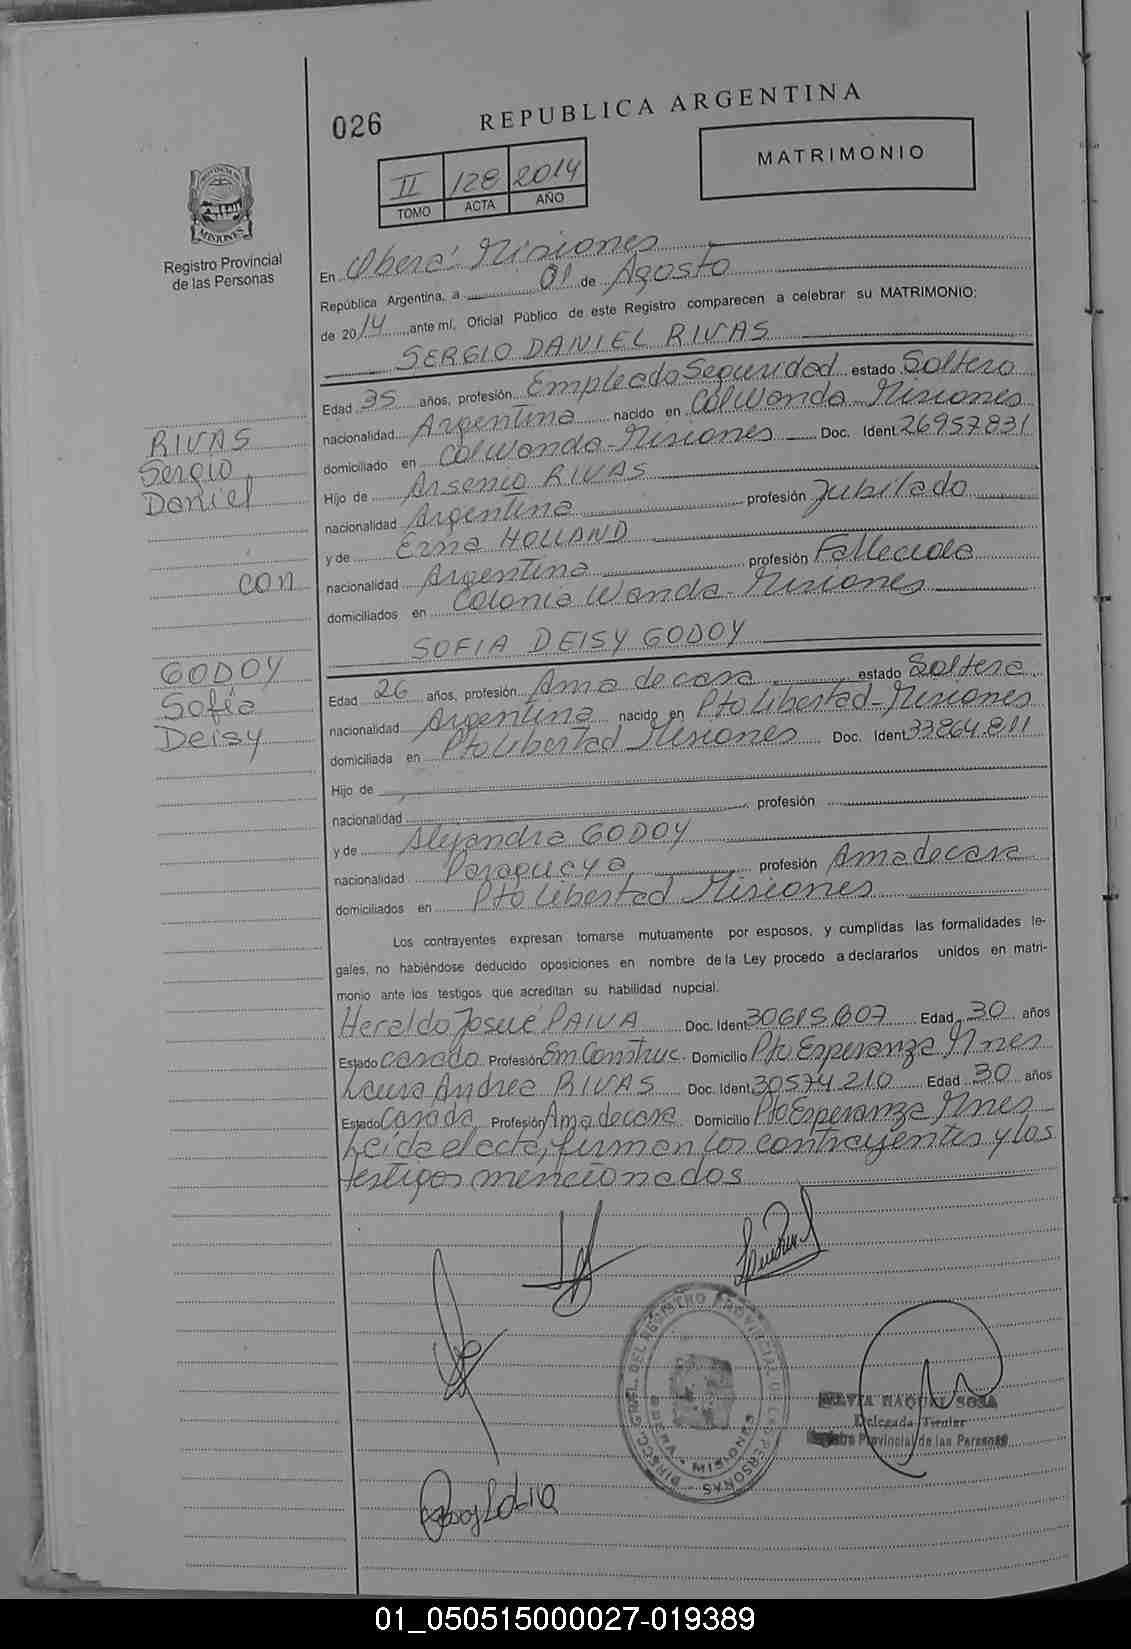 026
REPUBLICA ARGENTINA
MATRIMONIO
II 128 2014
TOMO ACTA AÑO
PROVINCIA DE
MISIONES
Registro Provincial
de las Personas
En Oberá Misiones
República Argentina, a 01 de Agosto
de 2014 ante mí, Oficial Público de este Registro comparecen a celebrar su MATRIMONIO:
SERGIO DANIEL RIVAS
Edad 35 años, profesión Empleado Seguridad estado Soltero
nacionalidad Argentina nacido en Col Wanda Misiones
domiciliado en Col Wanda - Misiones Doc. Ident. 26957831
Hijo de Arsenio RIVAS
nacionalidad Argentina profesión Jubilado
y de Erna HOLLAND
nacionalidad Argentina profesión Fallecida
domiciliados en Colonia Wanda - Misiones
RIVAS
Sergio
Daniel
con
GODOY
Sofía
Deisy
SOFIA DEISY GODOY
Edad 26 años, profesión Ama de casa estado Soltera
nacionalidad Argentina nacido en Pto Libertad - Misiones
domiciliada en Pto Libertad Misiones Doc. Ident. 33864.811
Hijo de
nacionalidad , profesión
y de Alejandra GODOY
nacionalidad Paraguaya profesión Ama de casa
domiciliados en Pto Libertad Misiones
Los contrayentes expresan tomarse mutuamente por esposos, y cumplidas las formalidades le-
gales, no habiéndose deducido oposiciones en nombre de la Ley procedo a declararlos unidos en matri-
monio ante los testigos que acreditan su habilidad nupcial.
Heraldo Josué PAIVA Doc. Ident. 30615.607 Edad 30 años
Estado casado Profesión Em Construc. Domicilio Pto Esperanza Mnes
Laura Andrea RIVAS Doc. Ident. 30574.210 Edad 30 años
Estado Casada Profesión Ama de casa Domicilio Pto Esperanza Mnes
Leída el acta, firman los contrayentes y los
testigos mencionados
DIRECC. GRAL. DEL REGISTRO PROVINCIAL DE LAS PERSONAS
OBERA - MISIONES
RAQUEL SOSA
Delegada Titular
Registro Provincial de las Personas
01_050515000027-019389